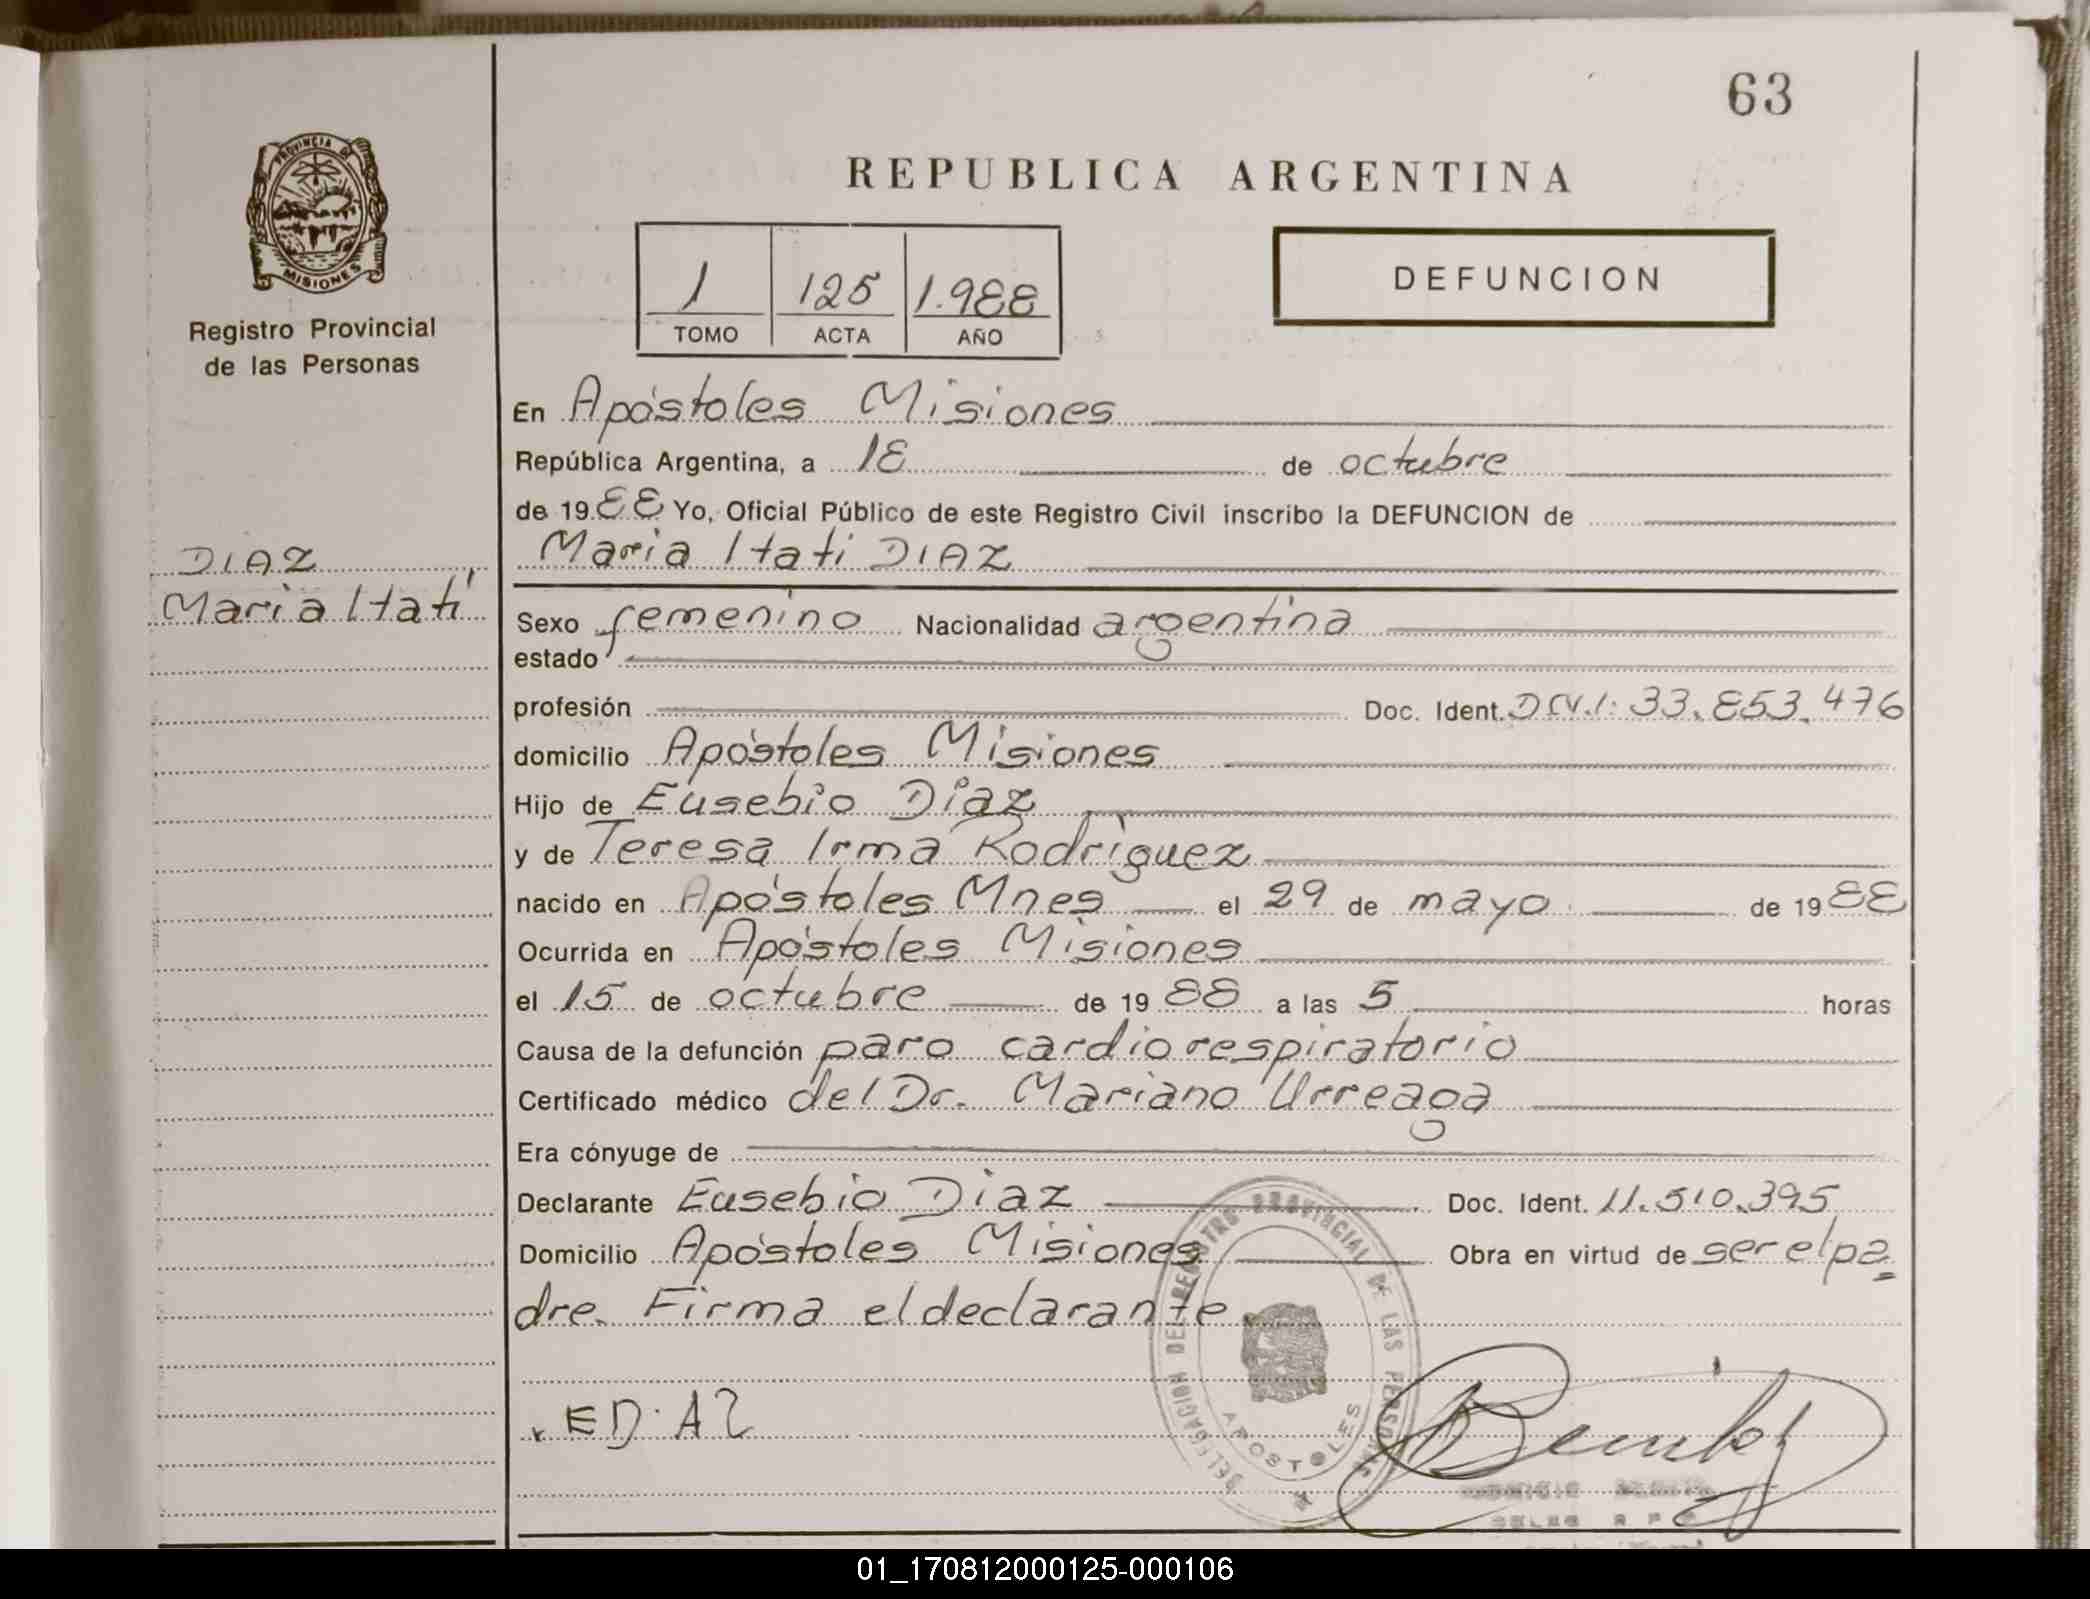 63
PROVINCIA DE
MISIONES
Registro Provincial
de las Personas
REPUBLICA ARGENTINA
1 125 1.988
TOMO ACTA AÑO
DEFUNCION
En Apóstoles Misiones
República Argentina, a 18 de octubre
de 1988 Yo, Oficial Público de este Registro Civil inscribo la DEFUNCION de
Maria Itatí DIAZ
DIAZ
Maria Itatí
Sexo femenino Nacionalidad argentina
estado
profesión Doc. Ident. D.N.I: 33.853.476
domicilio Apóstoles Misiones
Hijo de Eusebio Diaz
y de Teresa Irma Rodriguez
nacido en Apóstoles Mnes el 29 de mayo de 1988
Ocurrida en Apóstoles Misiones
el 15 de octubre de 1988 a las 5 horas
Causa de la defunción paro cardiorespiratorio
Certificado médico del Dr. Mariano Urreaga
Era cónyuge de
Declarante Eusebio Diaz Doc. Ident. 11.510.395
Domicilio Apóstoles Misiones Obra en virtud de ser el pa
dre. Firma el declarante
DELEGACION DEL REGISTRO PROVINCIAL DE LAS PERSONAS
APOSTOLES
EDiAZ
Benitez
01_170812000125-000106